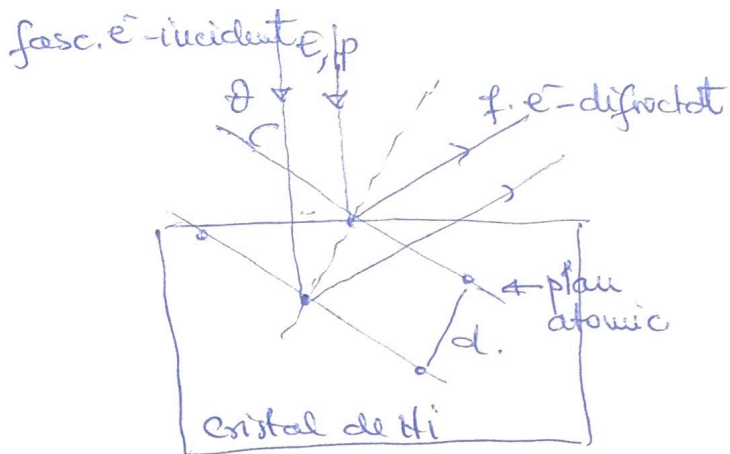 fasc. e⁻-incident E, p
θ
f. e⁻-difractat
← plan
atomic
d.
Cristal de Ni